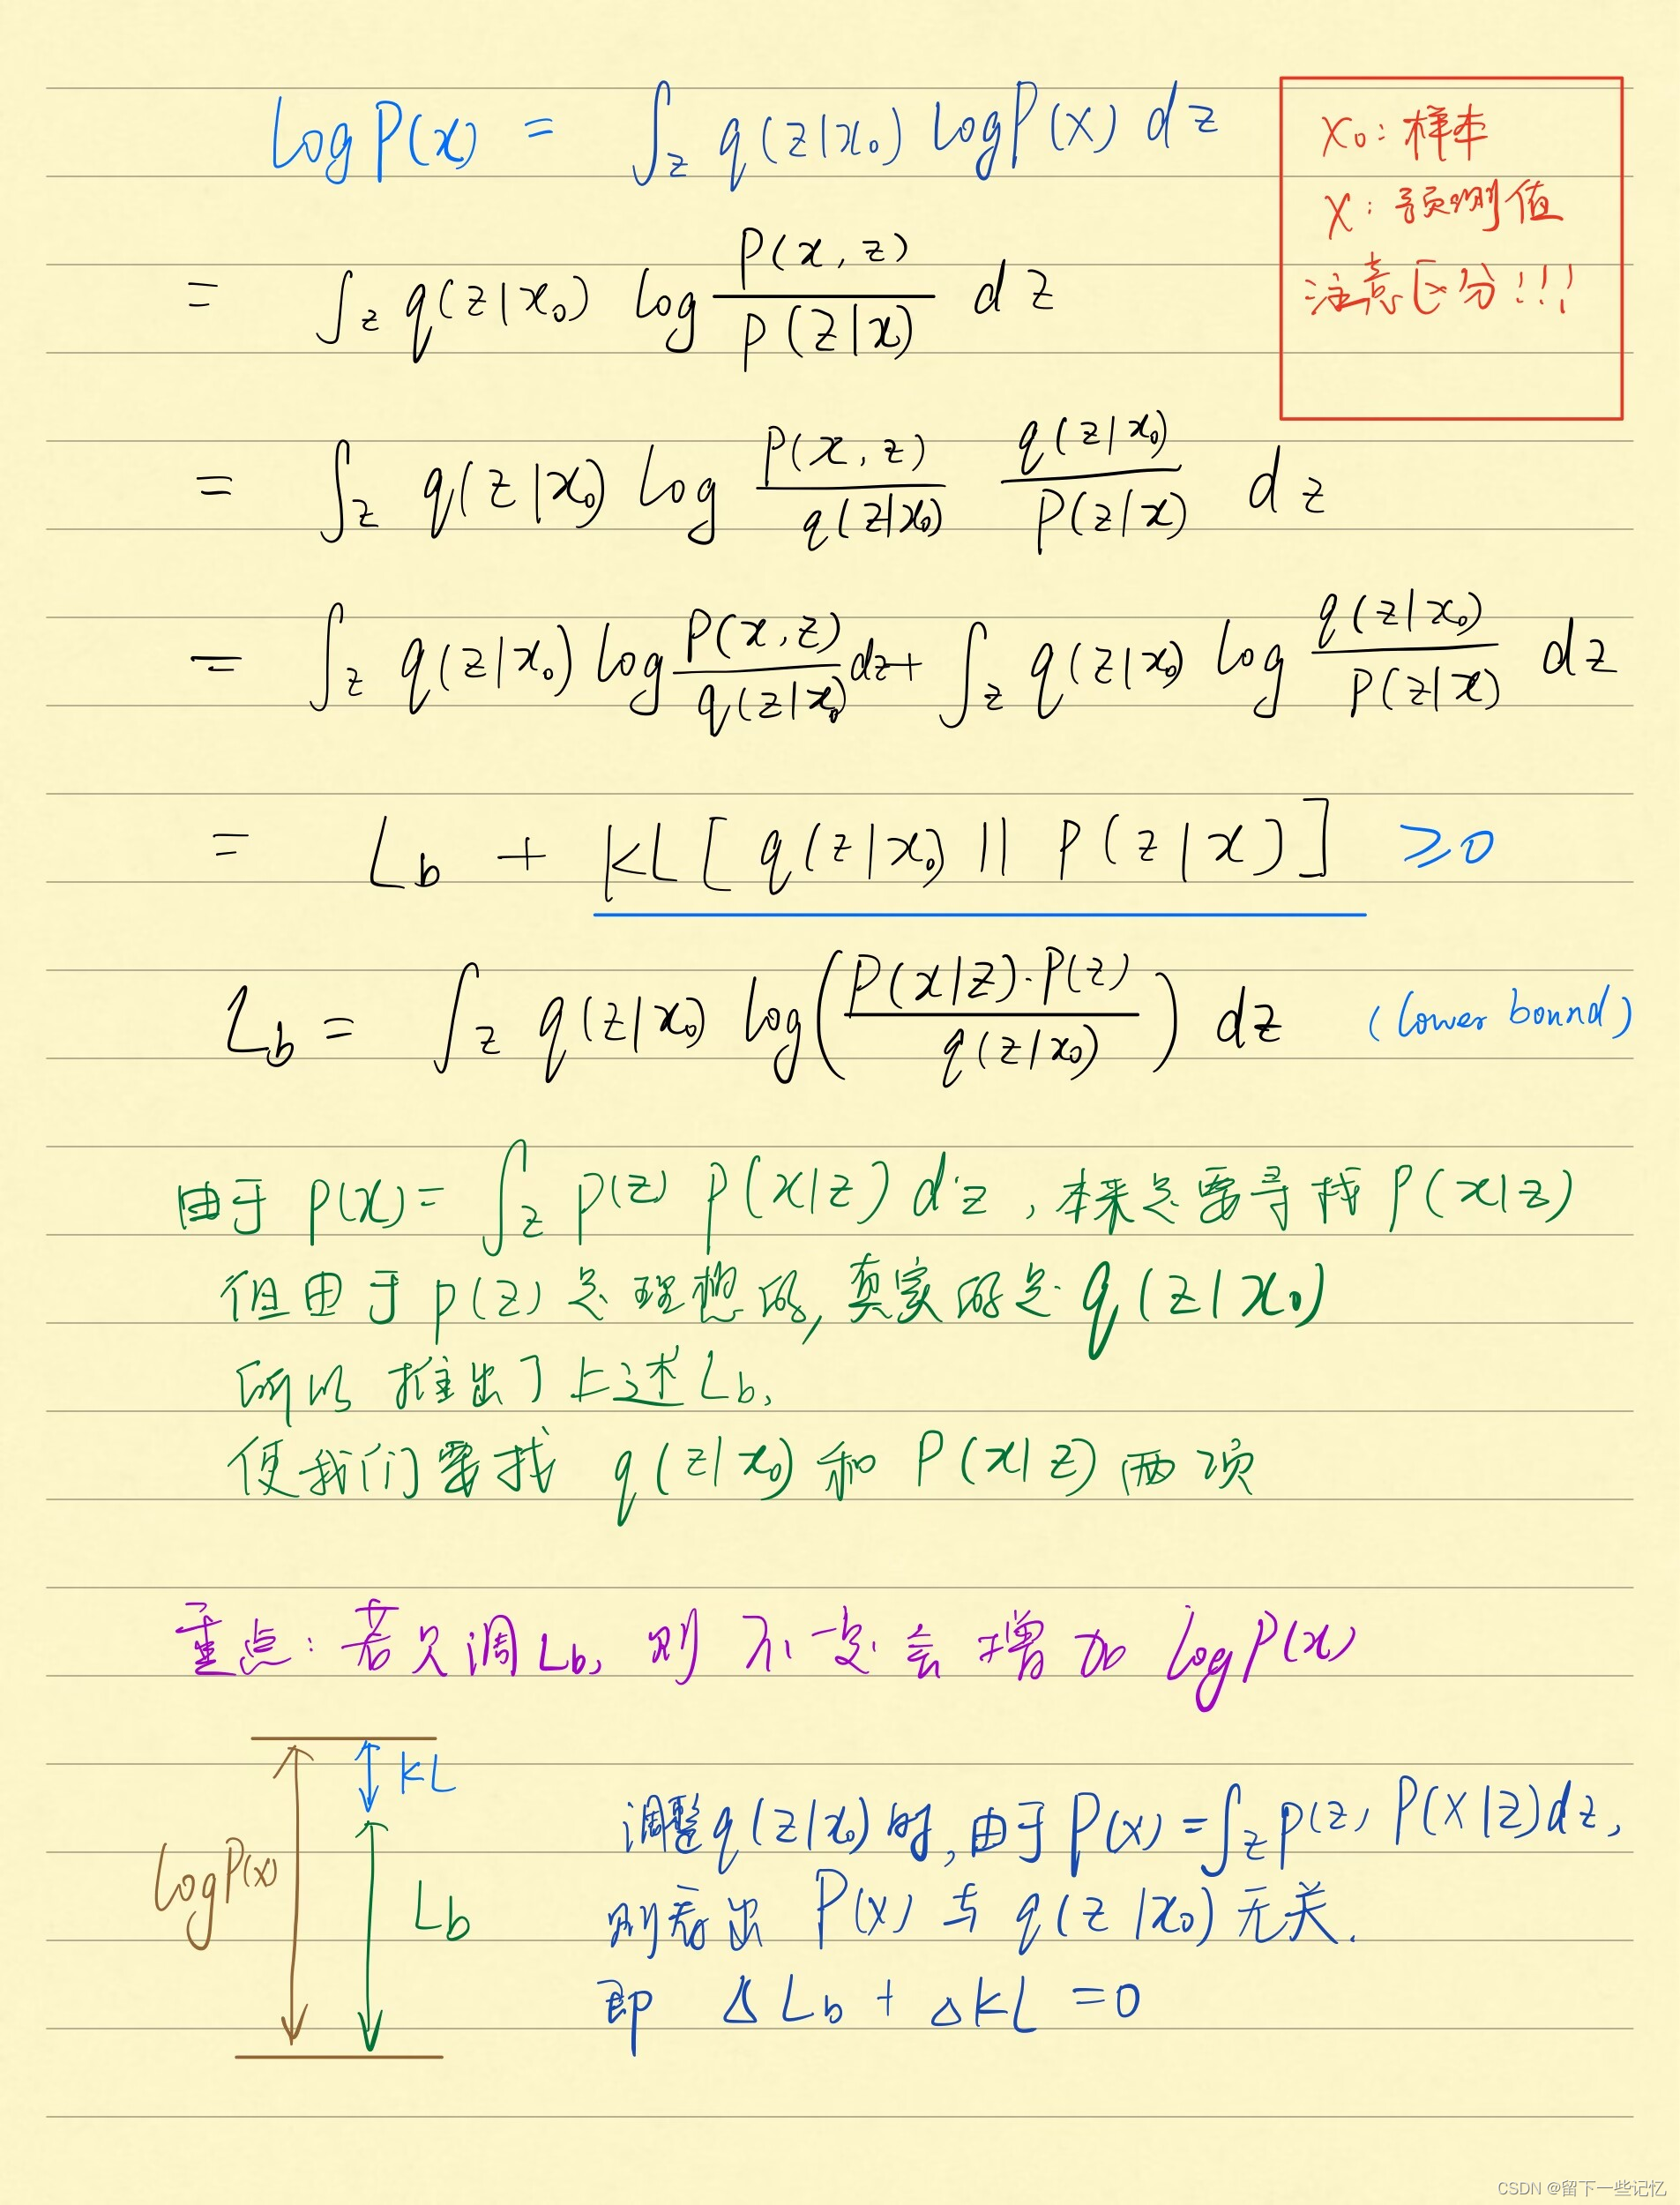 log P(x) = ∫_z q(z|x₀) log P(x) dz
x₀：样本
x：预测值
注意区分!!!
= ∫_z q(z|x₀) log P(x,z)/P(z|x) dz
= ∫_z q(z|x₀) log P(x,z)/q(z|x₀) q(z|x₀)/P(z|x) dz
= ∫_z q(z|x₀) log P(x,z)/q(z|x₀) dz + ∫_z q(z|x₀) log q(z|x₀)/P(z|x) dz
= L_b + KL[q(z|x₀) || P(z|x)] ≥0
L_b = ∫_z q(z|x₀) log(P(x|z)·P(z)/q(z|x₀)) dz (lower bound)
由于 p(x) = ∫_z p(z) p(x|z) dz，本来是要寻找 P(x|z)
但由于 p(z) 是理想的，真实的是 q(z|x₀)
所以推出了上述 L_b，
使我们要找 q(z|x₀) 和 P(x|z) 两项
重点：若只调 L_b，则不一定会增加 log P(x)
KL
log P(x)
L_b
调整 q(z|x₀) 时，由于 P(x) = ∫_z p(z) P(x|z) dz，
则看出 P(x) 与 q(z|x₀) 无关.
即 ΔL_b + ΔKL = 0
CSDN @留下一些记忆